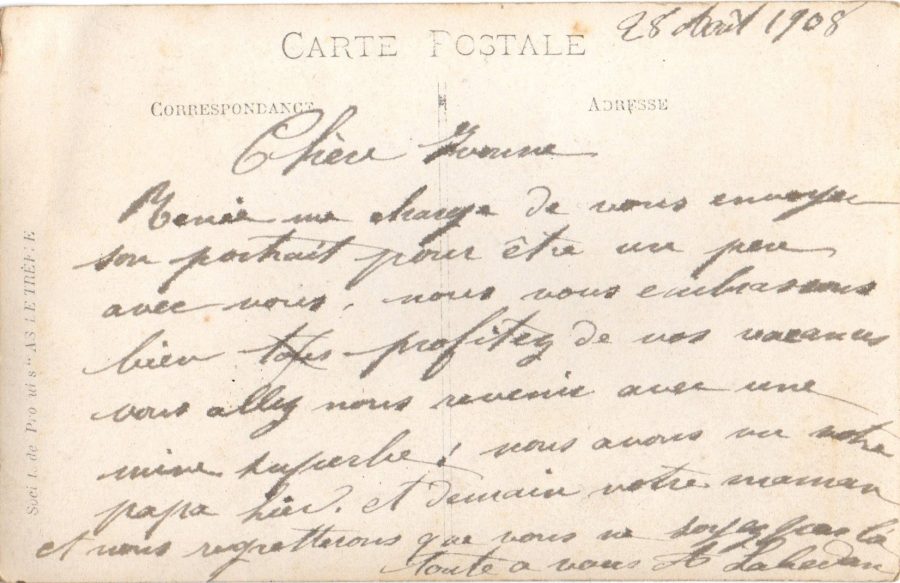 28 Août 1908
CARTE POSTALE
CORRESPONDANCE
ADRESSE
Chère Yvonne
Renée me charge de vous envoyer
son portrait pour être un peu
avec vous, nous vous embrassons
bien tous profitez de vos vacances
vous allez nous revenir avec une
mine superbe ; nous avons vu votre
papa hier. et demain votre maman
et nous regretterons que vous ne soyez pas là
toute a vous A
Soci t. de Pro uits "AS LE TRÈFLE